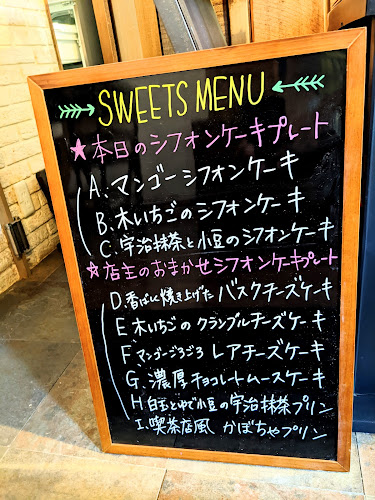 SWEETS MENU
★本日のシフォンケーキプレート
A.マンゴーシフォンケーキ
B.木いちごのシフォンケーキ
C.宇治抹茶と小豆のシフォンケーキ
☆店主のおまかせシフォンケーキプレート
D香ばしく焼き上げたバスクチーズケーキ
E木いちごのクランブルチーズケーキ
F マンゴーごろごろ レアチーズケーキ
G.濃厚チョコレートムースケーキ
H白玉とゆで小豆の宇治抹茶プリン
I.喫茶店風 かぼちゃプリン